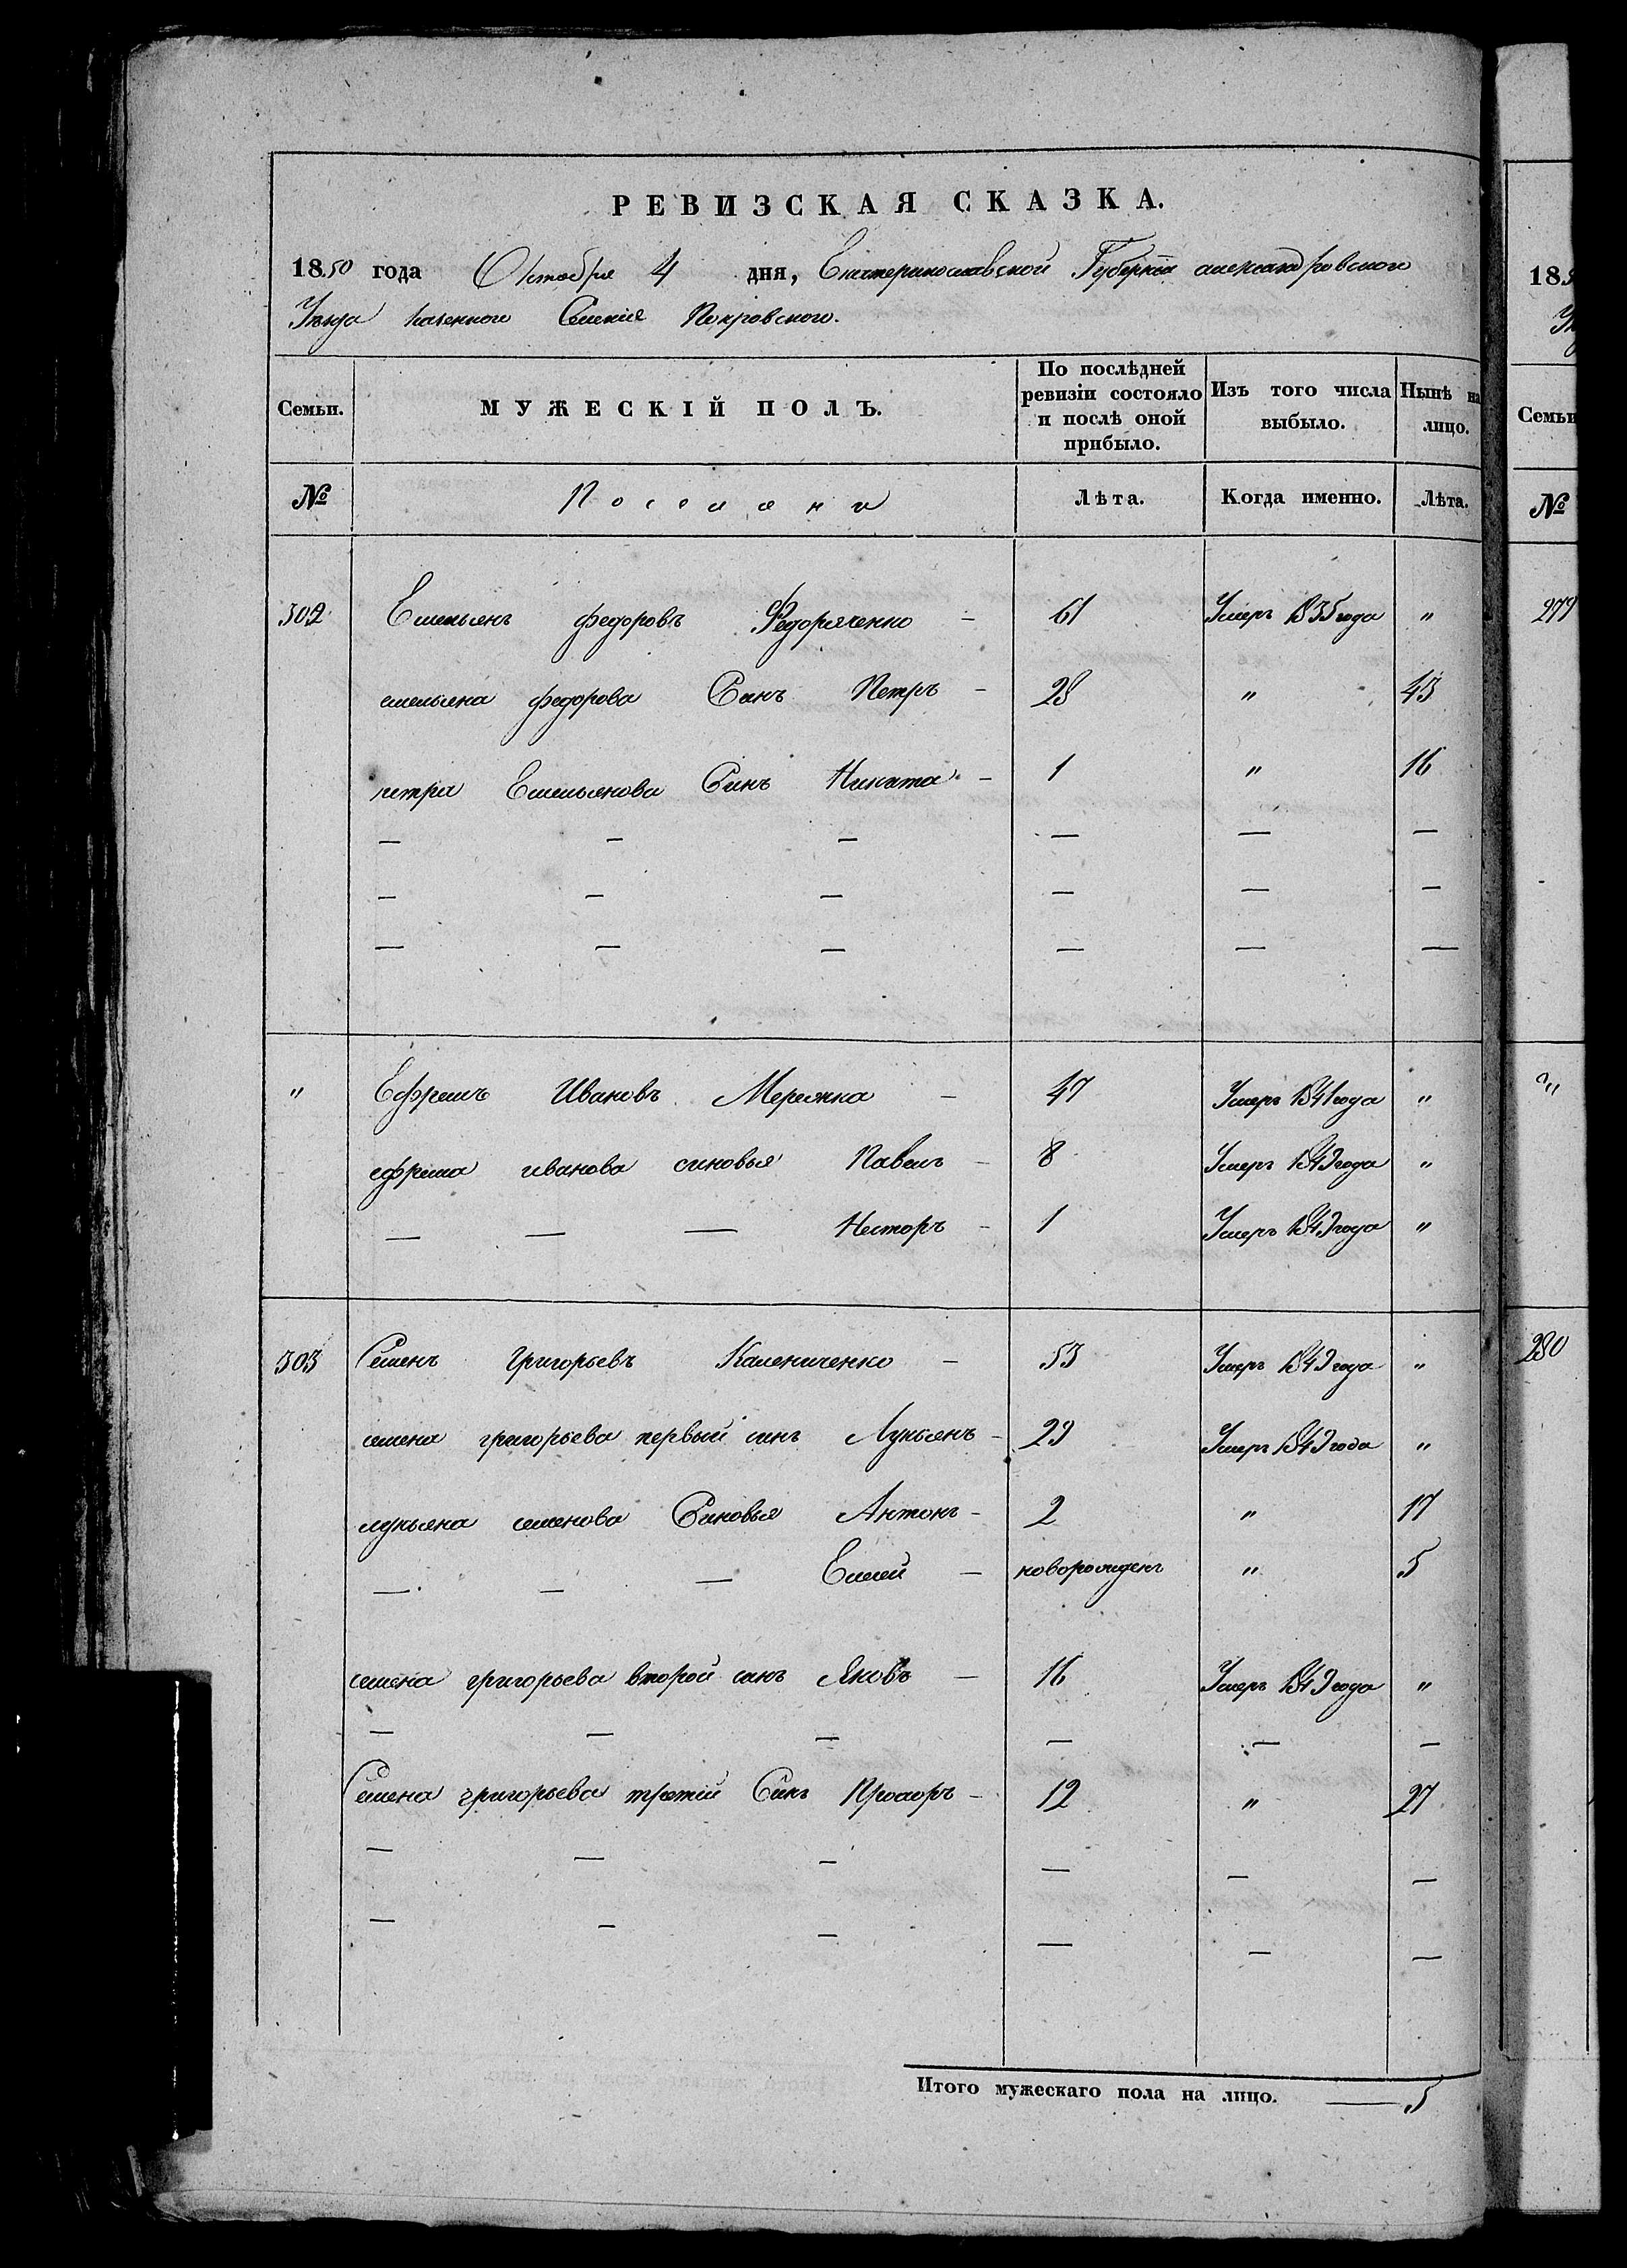 РЕВИЗСКАЯ СКАЗКА.
1850 года Октября 4 дня, Екатеринославской Губерніи александровского
Уезда казенного Селенія Покровского.
Семьи. МУЖЕСКІЙ ПОЛЪ. По послѣдней ревизіи состояло и послѣ оной прибыло. Изъ того числа выбыло. Нынѣ на лицо.
№ Поселяни Лѣта. Когда именно. Лѣта.
302 Емельянъ федоровъ Федоряченко — 61 Умеръ 1835 года "
емельяна федорова Синъ Петръ — 28 " 43
петра Емельянова Синъ Никита — 1 " 16
— — — — — —
— — — — — —
— — — — — —
" Ефремъ Ивановъ Мережка — 47 Умеръ 1841 года "
ефрема иванова синовья Павелъ — 8 Умеръ 1849 года "
— — — Несторъ — 1 Умеръ 1849 года "
303 Семенъ григорьевъ Калениченко — 53 Умеръ 1849 года "
семена григорьева первый синъ Лукьянъ — 29 Умеръ 1849 года "
лукьяна семенова Синовья Антонъ — 2 " 17
— — — Емеліей — новорожденъ " 5
семена григорьева второй синъ Яковъ — 16 Умеръ 1849 года "
— — — — — —
Семена григорьева третій Синъ Прохоръ — 12 " 27
— — — — — —
— — — — — —
Итого мужескаго пола на лицо. — 5
185
Семьи
№
279
"
280